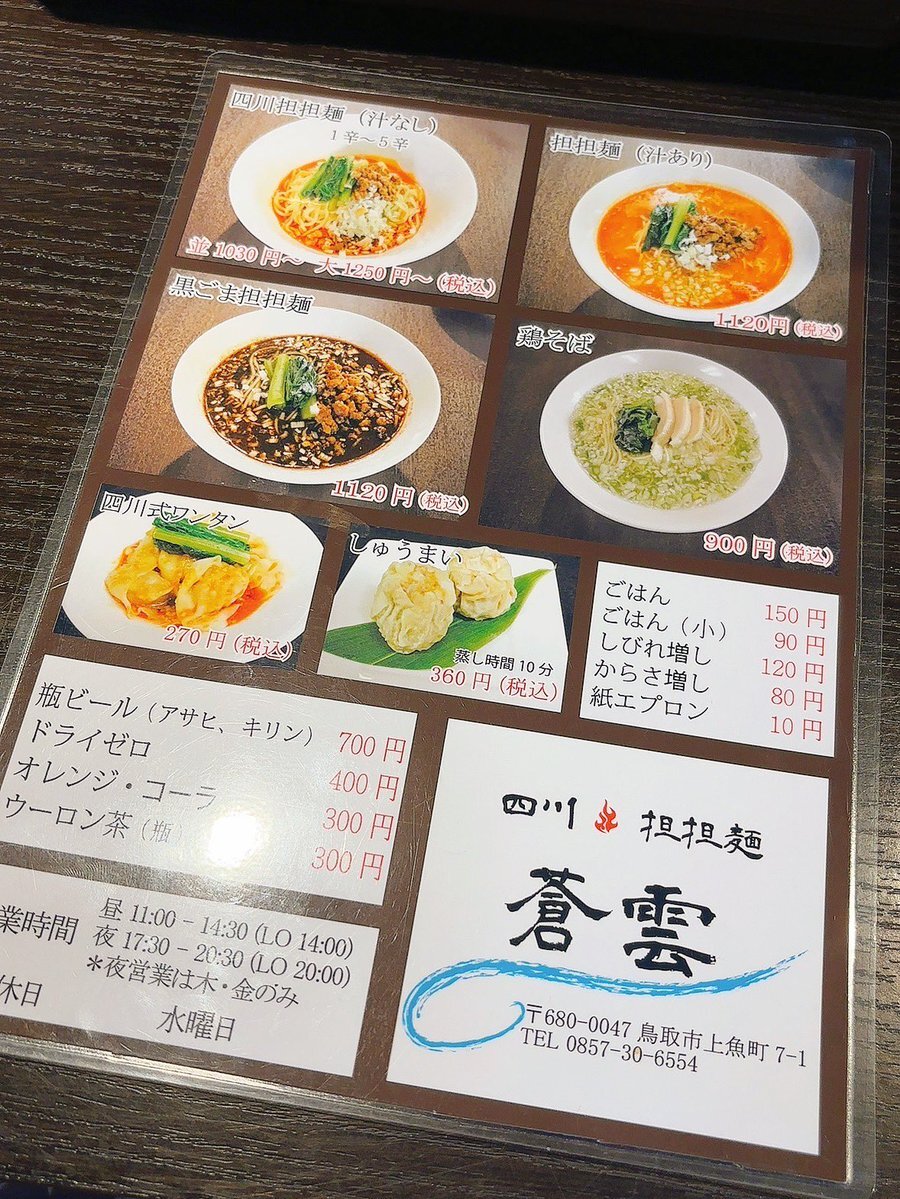 四川担担麺（汁なし）
1辛〜5辛
並1030円〜 大1250円〜(税込)
担担麺（汁あり）
1120円(税込)
黒ごま担担麺
1120円(税込)
鶏そば
900円(税込)
四川式ワンタン
270円(税込)
しゅうまい
蒸し時間10分
360円(税込)
ごはん 150円
ごはん（小） 90円
しびれ増し 120円
からさ増し 80円
紙エプロン 10円
瓶ビール（アサヒ、キリン） 700円
ドライゼロ 400円
オレンジ・コーラ 300円
ウーロン茶（瓶） 300円
業時間 昼 11:00 - 14:30 (LO 14:00)
夜 17:30 - 20:30 (LO 20:00)
＊夜営業は木・金のみ
休日 水曜日
四川 担担麺
蒼雲
〒680-0047 鳥取市上魚町 7-1
TEL 0857-30-6554